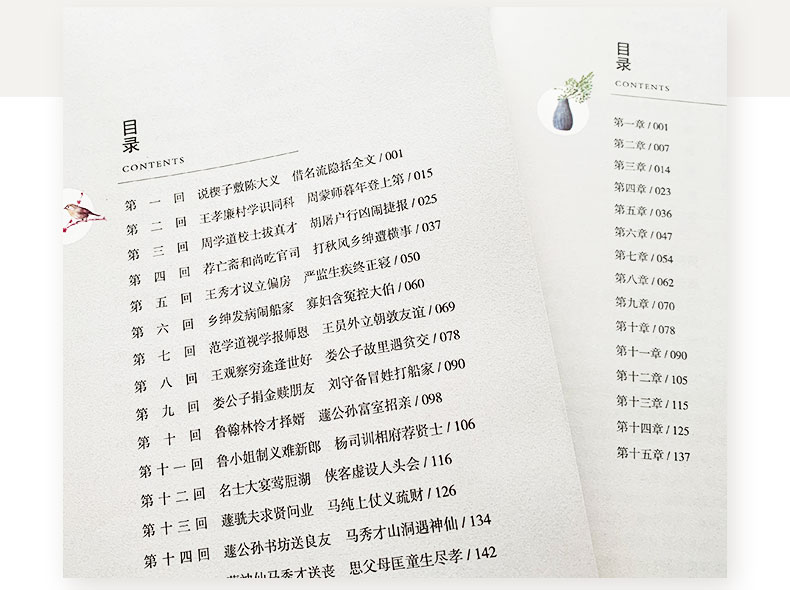 目录
CONTENTS
第一回 说楔子敷陈大义 借名流隐括全文 / 001
第二回 王孝廉村学识同科 周蒙师暮年登上第 / 015
第三回 周学道校士拔真才 胡屠户行凶闹捷报 / 025
第四回 荐亡斋和尚吃官司 打秋风乡绅遭横事 / 037
第五回 王秀才议立偏房 严监生疾终正寝 / 050
第六回 乡绅发病闹船家 寡妇含冤控大伯 / 060
第七回 范学道视学报师恩 王员外立朝敦友谊 / 069
第八回 王观察穷途逢世好 娄公子故里遇贫交 / 078
第九回 娄公子捐金赎朋友 刘守备冒姓打船家 / 090
第十回 鲁翰林怜才择婿 蘧公孙富室招亲 / 098
第十一回 鲁小姐制义难新郎 杨司训相府荐贤士 / 106
第十二回 名士大宴莺脰湖 侠客虚设人头会 / 116
第十三回 蘧駪夫求贤问业 马纯上仗义疏财 / 126
第十四回 蘧公孙书坊送良友 马秀才山洞遇神仙 / 134
神仙马秀才送丧 思父母匡童生尽孝 / 142
目录
CONTENTS
第一章 / 001
第二章 / 007
第三章 / 014
第四章 / 023
第五章 / 036
第六章 / 047
第七章 / 054
第八章 / 062
第九章 / 070
第十章 / 078
第十一章 / 090
第十二章 / 105
第十三章 / 115
第十四章 / 125
第十五章 / 137